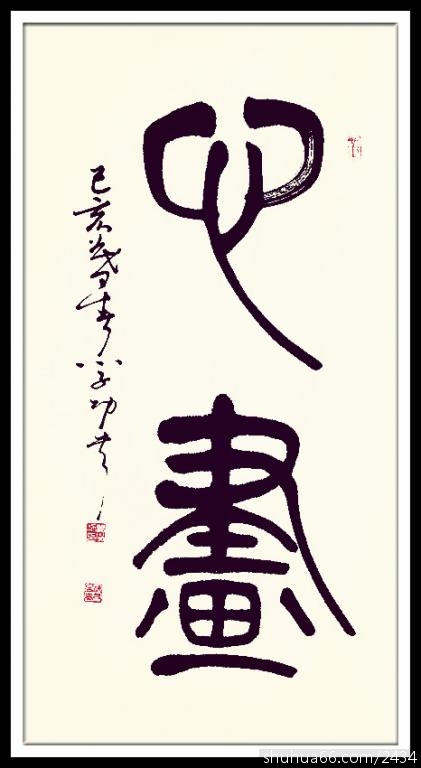 心畫
己亥歲春學功
shuhua66.com/2434